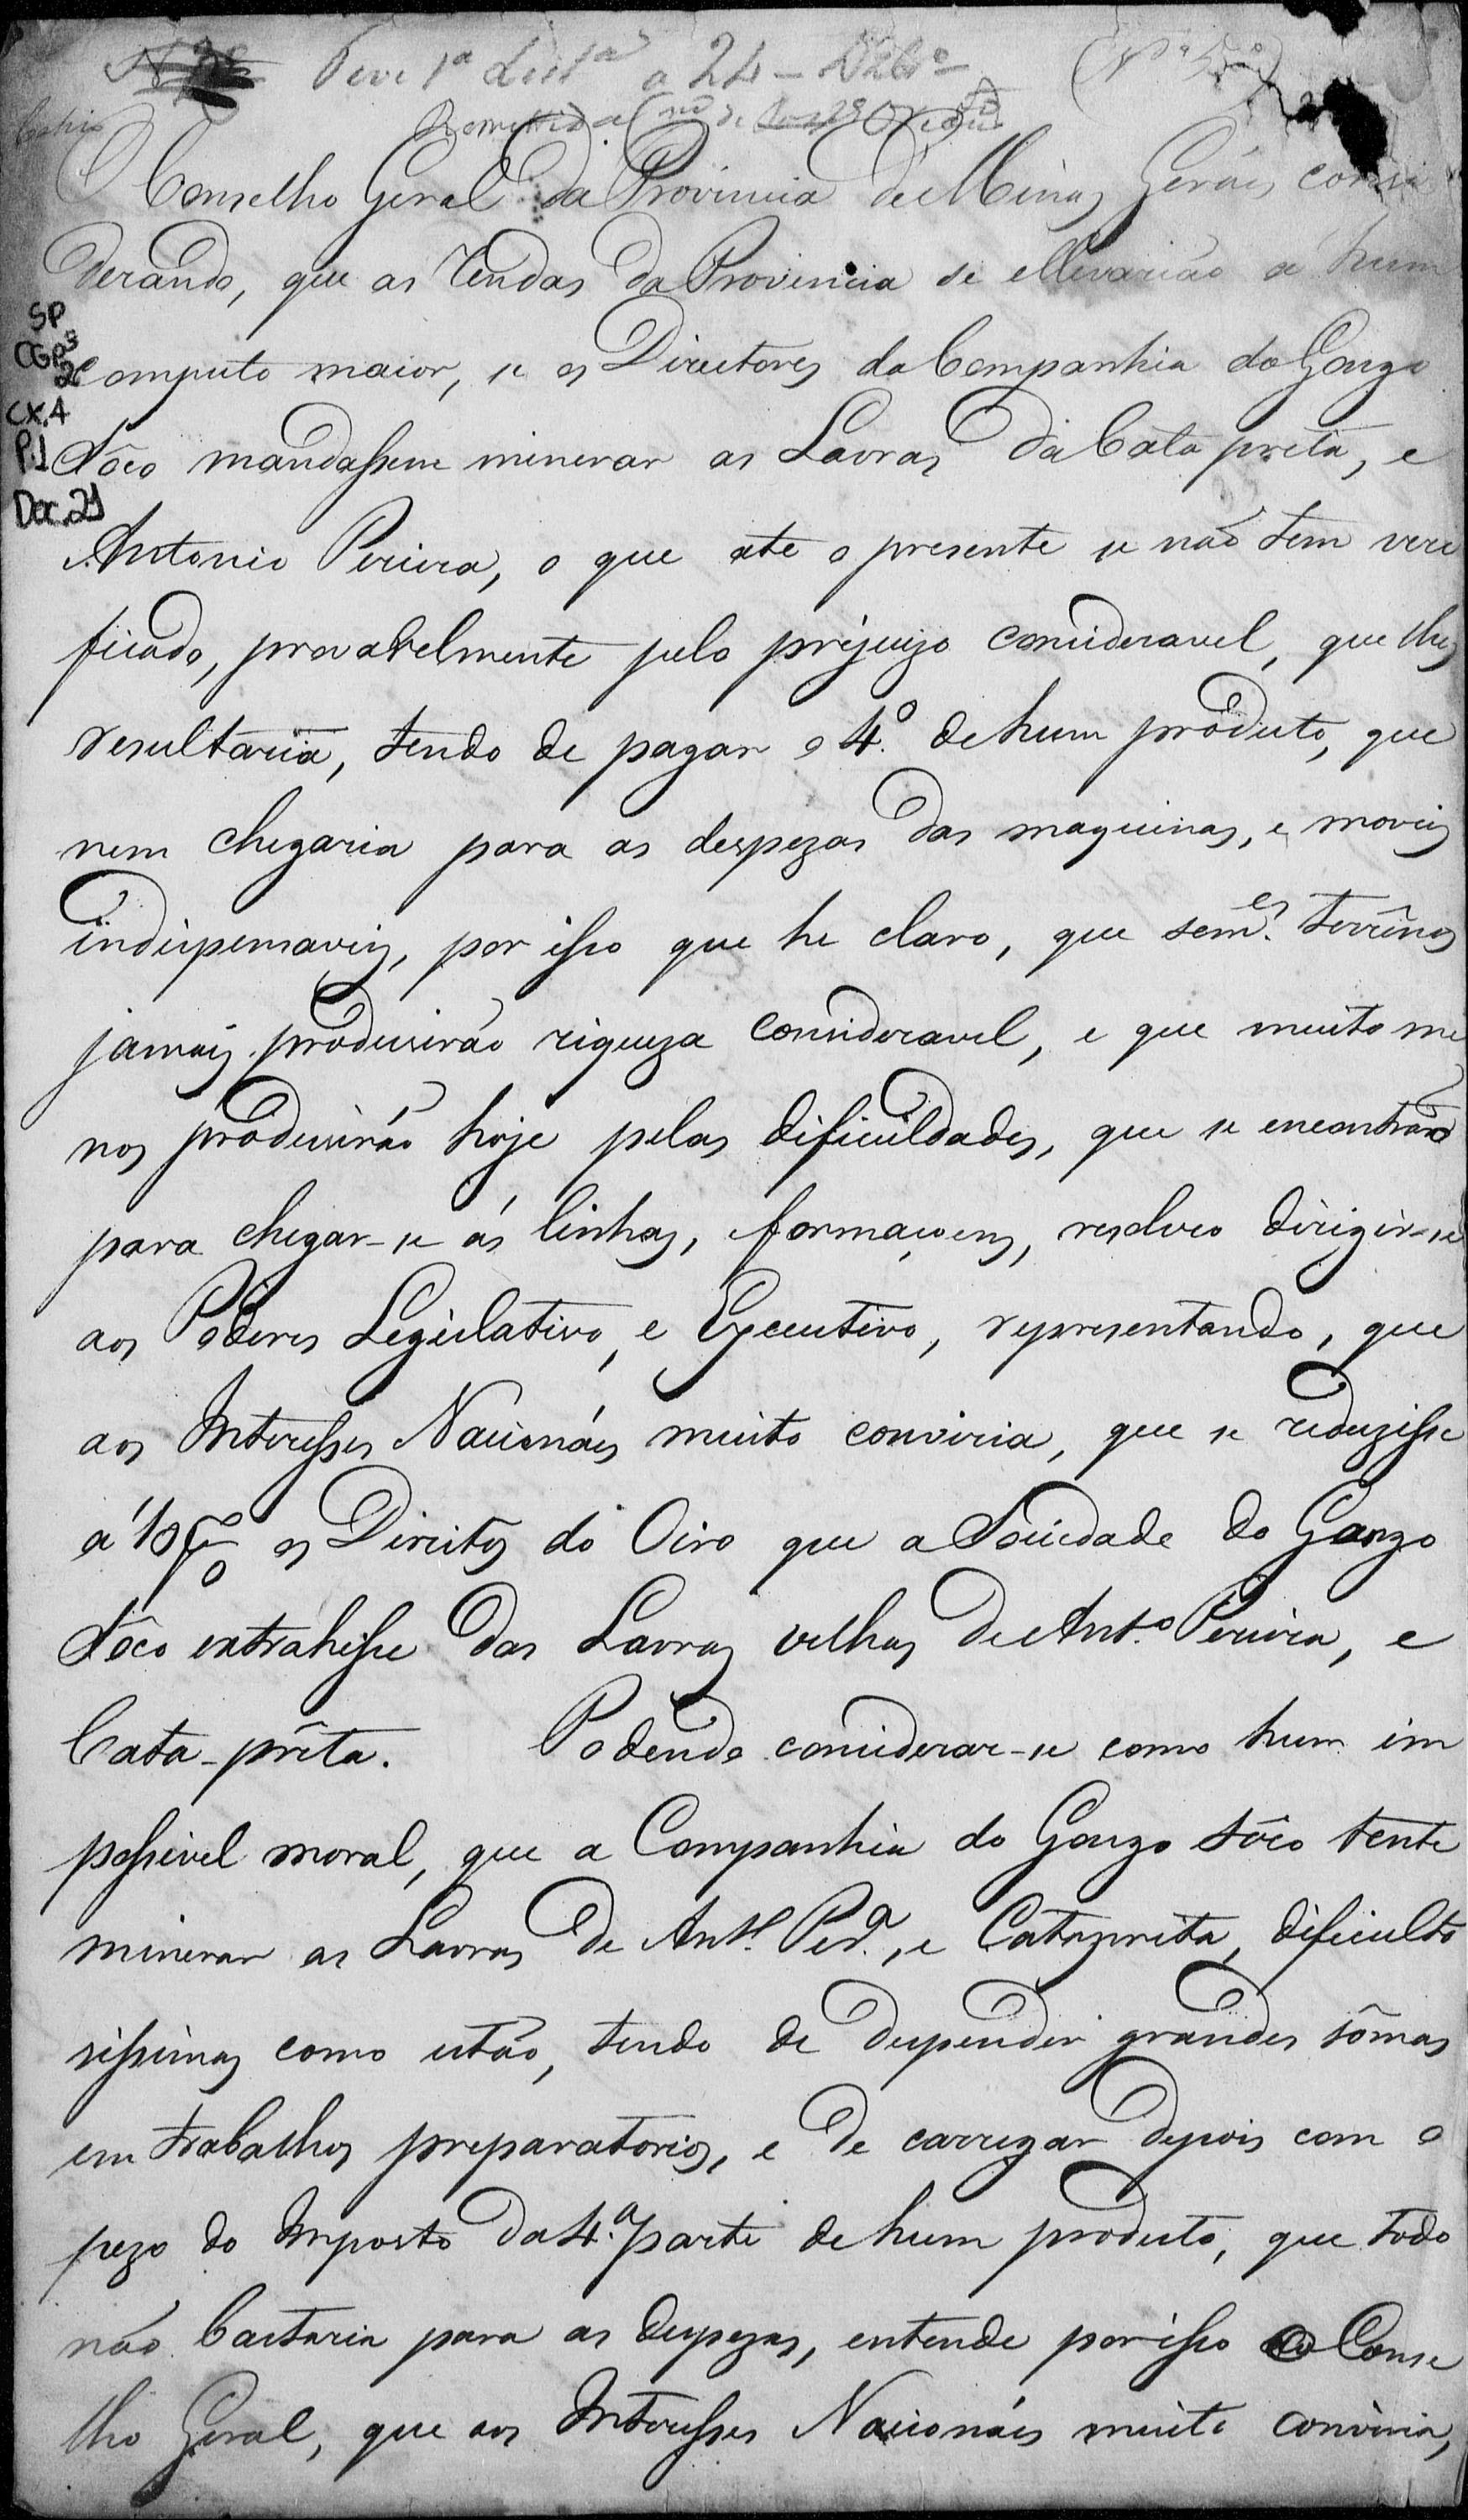 Teve 1ª Leitª a 24 -
Copia
O Conselho Geral da Provincia de Minas Geráes consi
derando, que as rendas da Provincia se ellevarião á hum
SP
CGP3
computo maior, se os Directores da Companhia do Gongo
CX.4
P.1
Sôco mandassem minerar as Lavras da Cata preta, e
Doc.21
Antonio Pereira, o que ate o presente se não tem veri
ficado, provavelmente pelo prejuizo consideravel, que lhes
resultaria, tendo de pagar o 4º de hum producto, que
nem chegaria para as despezas das maquinas, e moveis
indispensaveis, por isso que he claro, que semes. terrênos
jamais produsirão riqueza consideravel, e que muito me
nos produsirão hoje pelas dificuldades, que se encontrão
para chegar-se ás linhas, e formaçoens, resolveo dirigir-se
aos Poderes Legislativo, e Executivo, representando, que
aos Interesses Nacionáes muito conviria, que se reduzisse
a' 10 p% os Direitos do Oiro que a Sociedade do Gongo
Sôco extrahisse das Lavras velhas de Antº Pereira, e
Cata-prêta. Podendo considerar-se como hum im
possivel moral, que a Companhia do Gongo Sôco tente
minerar as Lavras de Antº Perª, e Catapreta, dificulto
sissimas como estão, tendo de despender grandes sômas
em trabalhos preparatorios, e de carregar depois com o
pezo do Imposto da 4ª parte de hum producto, que todo
não bastaria para as despezas, entende por isso o Conse
lho Geral, que aos Interesses Nacionáes muito conviria,